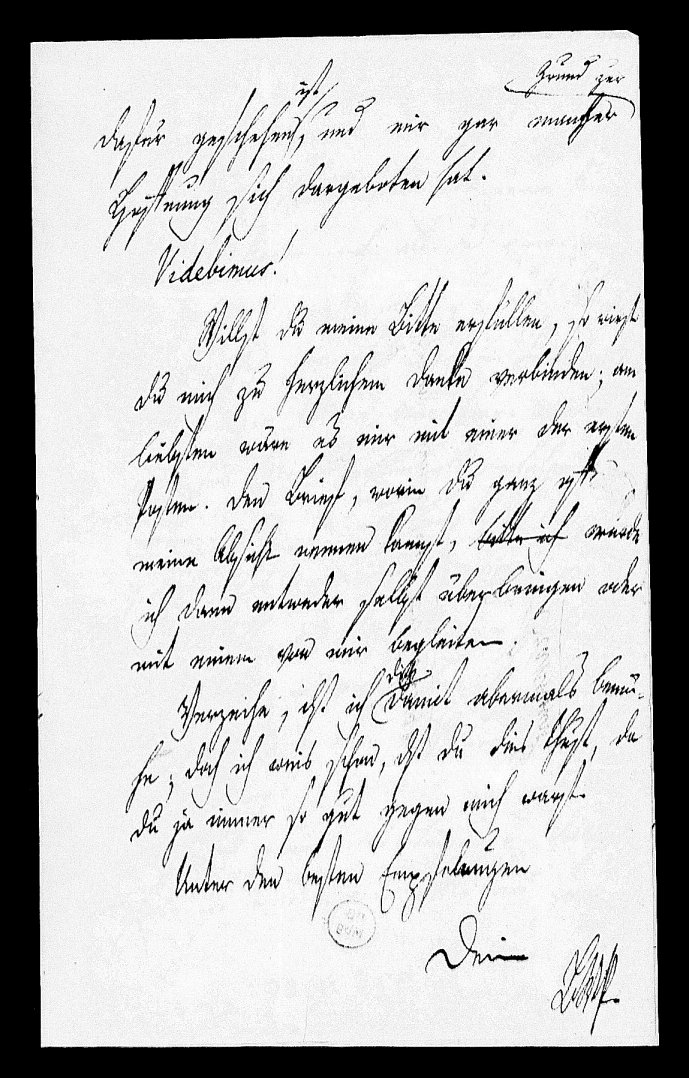 Grund zur
ist
dafür geschehen, und mir gar mancher
Hoffnung sich dargeboten hat.
Videbimus!
Willst du meine Bitte erfüllen, so wirst
du mich zu herzlichem Danke verbinden; am
liebsten wäre es mir mit einer der ersten
Posten. Den Brief, worin du ganz offen
meine Absicht nennen kannst, bitte ich würde
ich dann entweder selbst überbringen oder
mit einem von mir begleiten.
dich
Verzeihe, dß ich damit abermals bemü-
he; doch ich weis schon, dß du dies thust, da
du ja immer so gut gegen mich warst.
Unter den besten Empfelungen
Dein